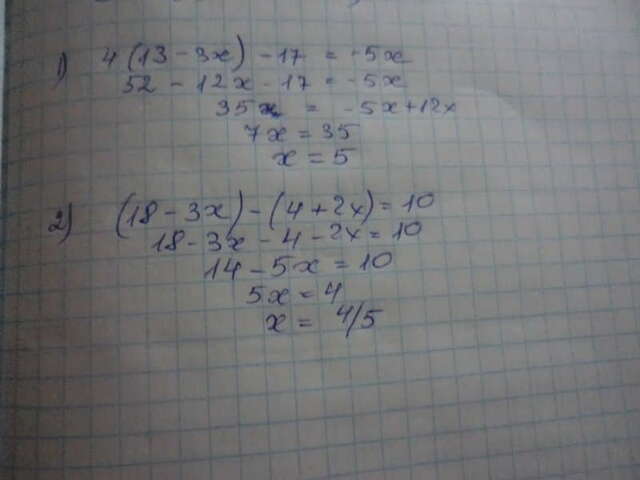 1) 4(13 - 3x) - 17 = -5x
52 - 12x - 17 = -5x
35 = -5x + 12x
7x = 35
x = 5
2) (18 - 3x) - (4 + 2x) = 10
18 - 3x - 4 - 2x = 10
14 - 5x = 10
5x = 4
x = 4/5